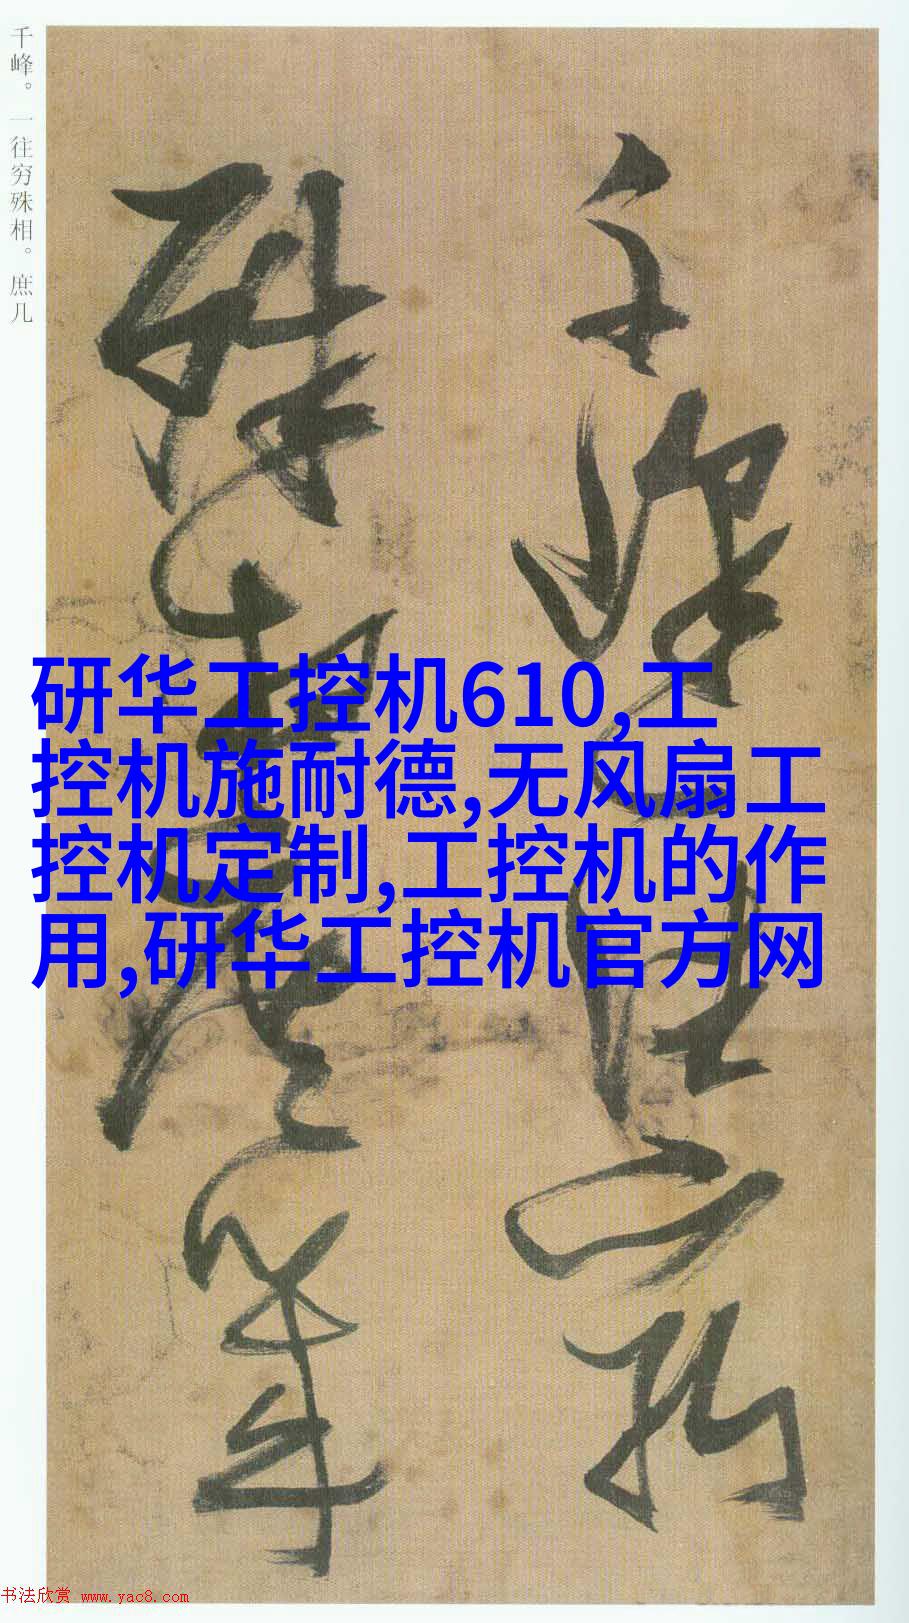 千峰。一往穷殊相。庶几
研华工控机610,工
控机施耐德,无风扇工
控机定制,工控机的作
用,研华工控机官方网
千峰一往穷
殊相庶几
书法欣赏 www.yac8.com